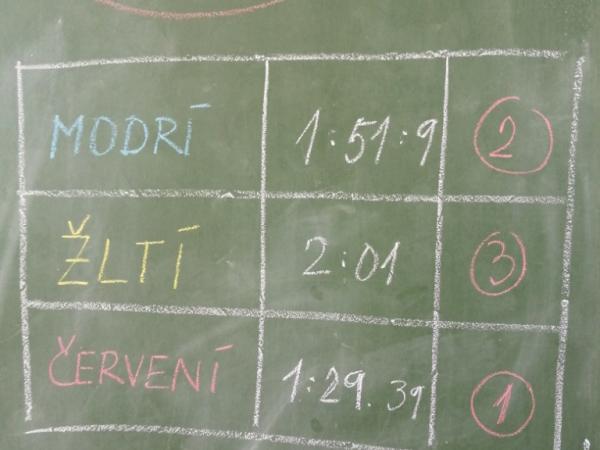 MODRÍ 1:51:9 2
ŽLTÍ 2:01 3
ČERVENÍ 1:29.39 1